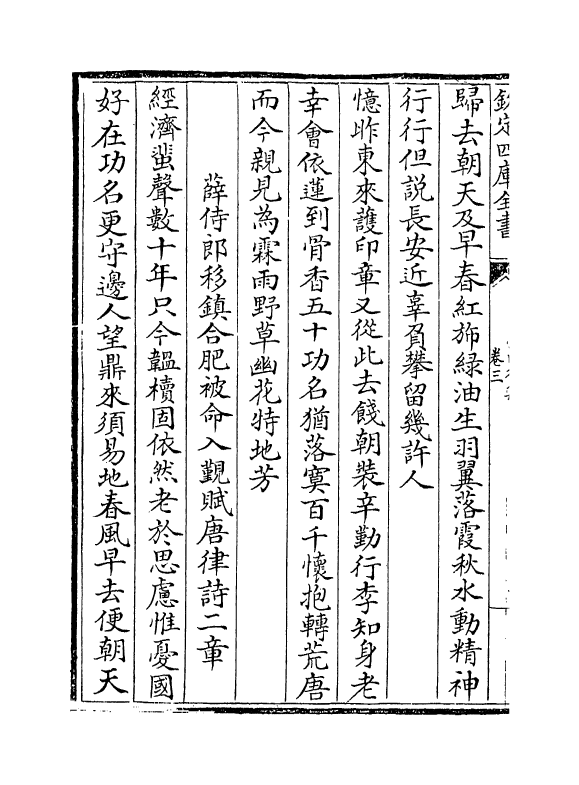 欽定四庫全書
卷三
歸去朝天及早春紅斾緑油生羽翼落霞秋水動精神
行行但説長安近辜負攀留幾許人
憶昨東來護印章又從此去餞朝裝辛勤行李知身老
幸會依蓮到骨香五十功名猶落寞百千懷抱轉荒唐
而今親見為霖雨野草幽花特地芳
薛侍郎移鎮合肥被命入覲賦唐律詩二章
經濟蜚聲數十年只今韞櫝固依然老於思慮惟憂國
好在功名更守邊人望鼎來須易地春風早去便朝天